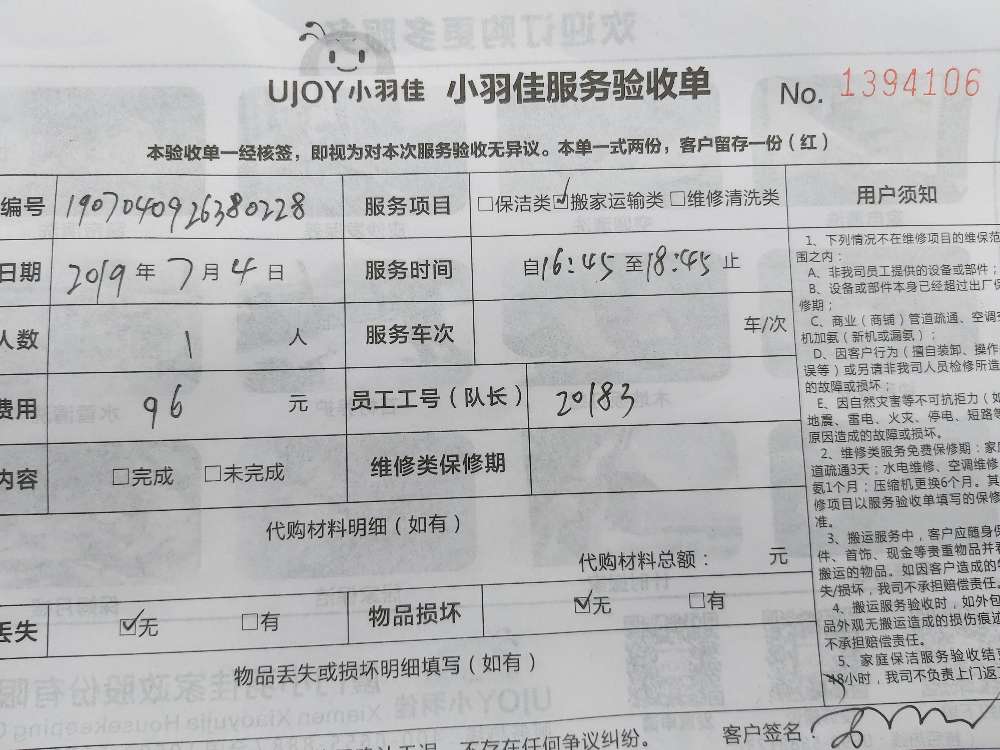 UJOY小羽佳 小羽佳服务验收单 No. 1394106
本验收单一经核签，即视为对本次服务验收无异议。本单一式两份，客户留存一份（红）
编号 1907040926380228 服务项目 □保洁类☑搬家运输类□维修清洗类
日期 2019年7月4日 服务时间 自16:45至18:45止
人数 1 人 服务车次 车/次
费用 96 元 员工工号（队长） 20183
内容 □完成 □未完成 维修类保修期
代购材料明细（如有）
代购材料总额： 元
丢失 ☑无 □有 物品损坏 ☑无 □有
物品丢失或损坏明细填写（如有）
不存在任何争议纠纷。 客户签名：
用户须知
1、下列情况不在维修项目的维保范
围之内：
A、非我司员工提供的设备或部件；
B、设备或部件本身已经超过出厂保
修期；
C、商业（商铺）管道疏通、空调
机加氨（新机或漏氨）；
D、因客户行为（擅自装卸、操作
误等）或另请非我司人员检修所造
的故障或损坏；
E、因自然灾害等不可抗拒力（如
地震、雷电、火灾、停电、短路等
原因造成的故障或损坏。
2、维修类服务免费保修期：家
道疏通3天；水电维修、空调维修
氨1个月；压缩机更换6个月。其
修项目以服务验收单填写的保修
准。
3、搬运服务中，客户应随身保
件、首饰、现金等贵重物品并看
搬运的物品。如因客户造成的
失/损坏，我司不承担赔偿责任。
4、搬运服务验收时，如外包
品外观无搬运造成的损伤痕迹
不承担赔偿责任。
5、家庭保洁服务验收结束
48小时，我司不负责上门返